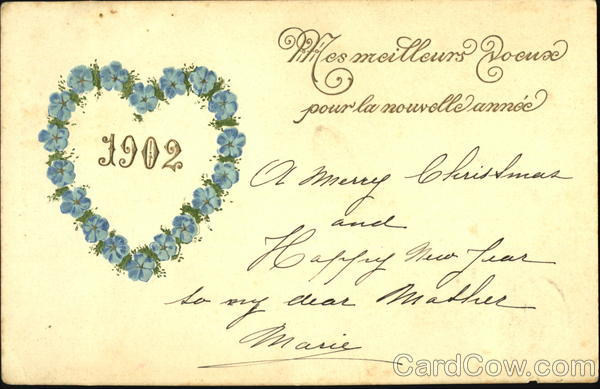 Mes meilleurs voeux
pour la nouvelle année
1902
A Merry Christmas
and
Happy New Year
to my dear Mother
Marie
CardCow.com